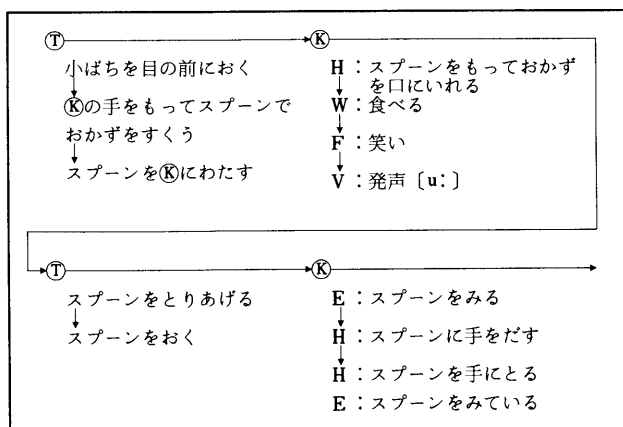 Ⓣ Ⓚ
小ばちを目の前におく
Ⓚの手をもってスプーンで
おかずをすくう
スプーンをⓀにわたす
H：スプーンをもっておかず
を口にいれる
W：食べる
F：笑い
V：発声〔u:〕
Ⓣ Ⓚ
スプーンをとりあげる
スプーンをおく
E：スプーンをみる
H：スプーンに手をだす
H：スプーンを手にとる
E：スプーンをみている